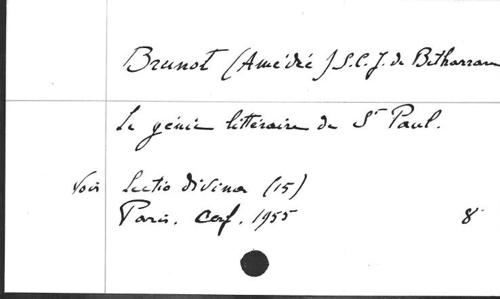 Brunot (Amédée) S.C.J. de Betharram
Le génie littéraire de St Paul.
Voir Lectio divina (15)
Paris. Cerf. 1955 8°